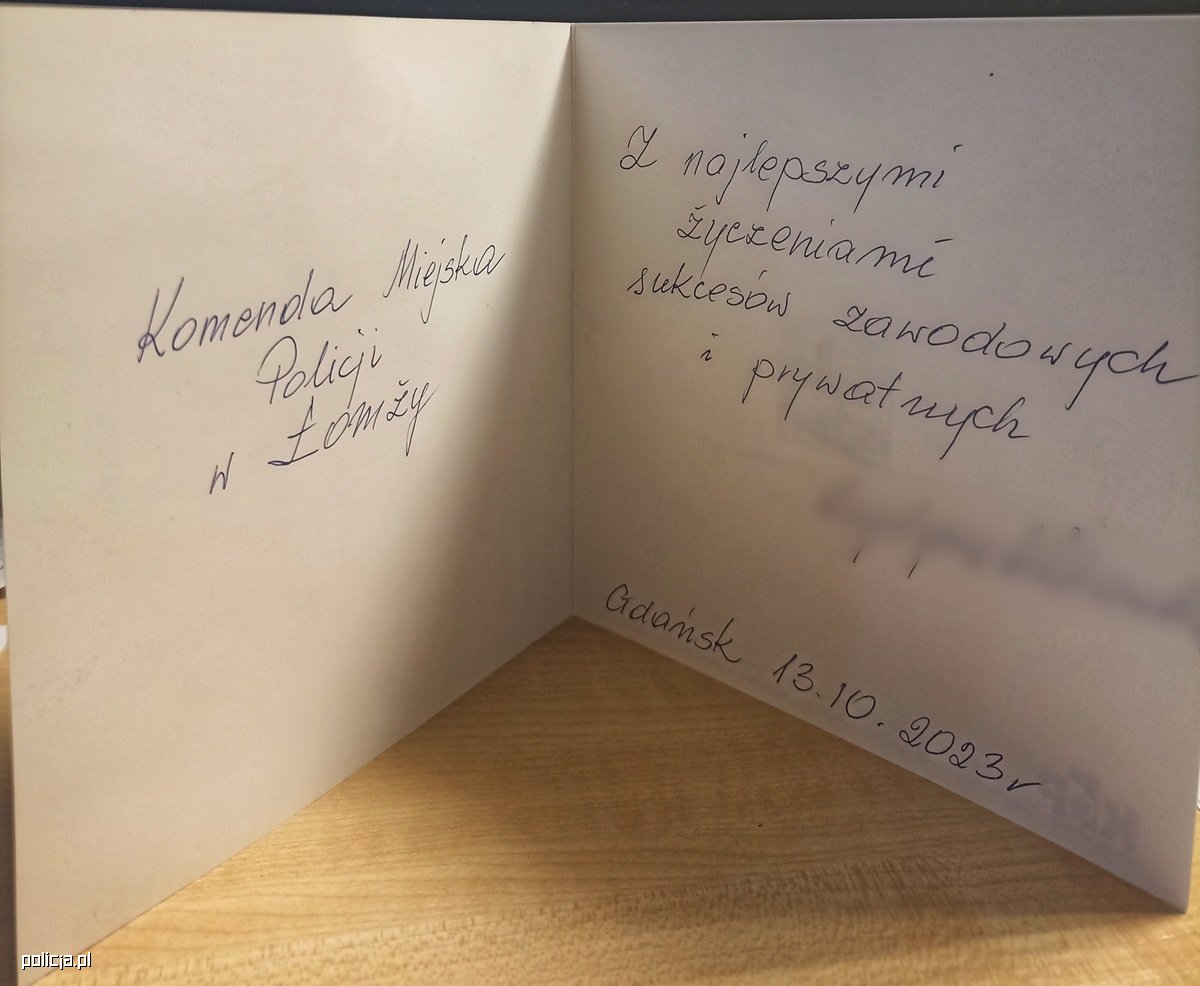 Komenda Miejska
Policji
w Łomży
Z najlepszymi
życzeniami
sukcesów zawodowych
i prywatnych
Gdańsk 13.10.2023r
policja.pl